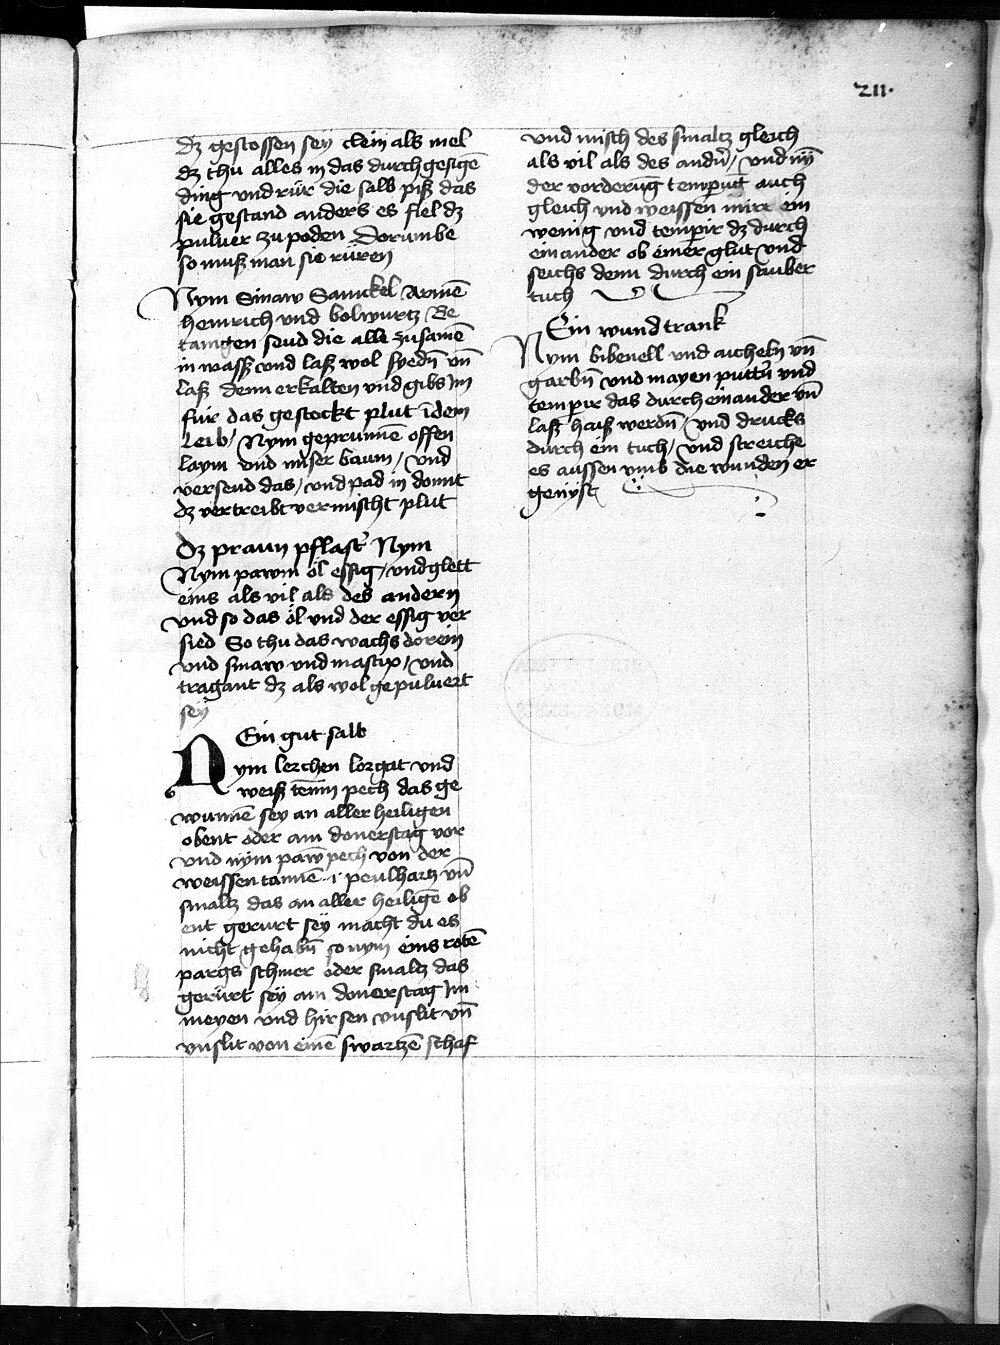 211.
dz gestossen sey clein als mel
dz thu alles in das durchgesigē
ding vnd rür die salb piß das
sie gestand anders es fiel dz
puluer zu poden Dorumbe
so muß man sie rüren
Nym Sinaw Sanickel
heinrich vnd holwurtz Be
tanigen seud die alle zusamē
in wasser vnd laß wol syedn̄ vn̄
laß denn erkalten vnd gibs Im
für das gestockt plut ī dem
leib / Nym geprunnē offen
laym vnd baum / vnd
verseud das / vnd pad in domit
dz vertreibt vermischt plut
Dz praun pflaster Nym
Nym pawm öl essig / vnd glett
eins als vil als des andern
vnd so das öl vnd der essig ver
sied So thu das wachs dorein
vnd sinaw vnd mastix / vnd
tragant dz als wol gepuluert
sey
Ein gut salb
Nym lerchen lorgat vnd
weiß tennin pech das ge
wunnē sey an aller heiligen
obent oder am donerstag vor
vnd nym pawm pech von der
weissen tannē .i. peulhartz vn̄
smaltz das an aller heiligē ob
ent gerurt sey macht du es
nicht gehabn̄ so nym eins rotē
pargs schmer oder smaltz das
gerürt sey am donerstag Im
meyen vnd hirsen vnslit vn̄
vnslit von einē swartzē schaf
vnd misch des smaltz gleich
als vil als des andn̄ / vnd
der vorderūg auch
gleich vnd weissen mirr ein
wenig vnd temperir dz durch
einander ob einer glut vnd
seichs denn durch ein sauber
tuch
Ein wund trank
Nym bibenell vnd aicheln vn̄
garbn̄ vnd mayen puttn̄ vnd
temperir das durch einander vn̄
laß haiß werdn̄ / vnd drucks
durch ein tuch / vnd streiche
es aussen vmb die wunden er
genyst